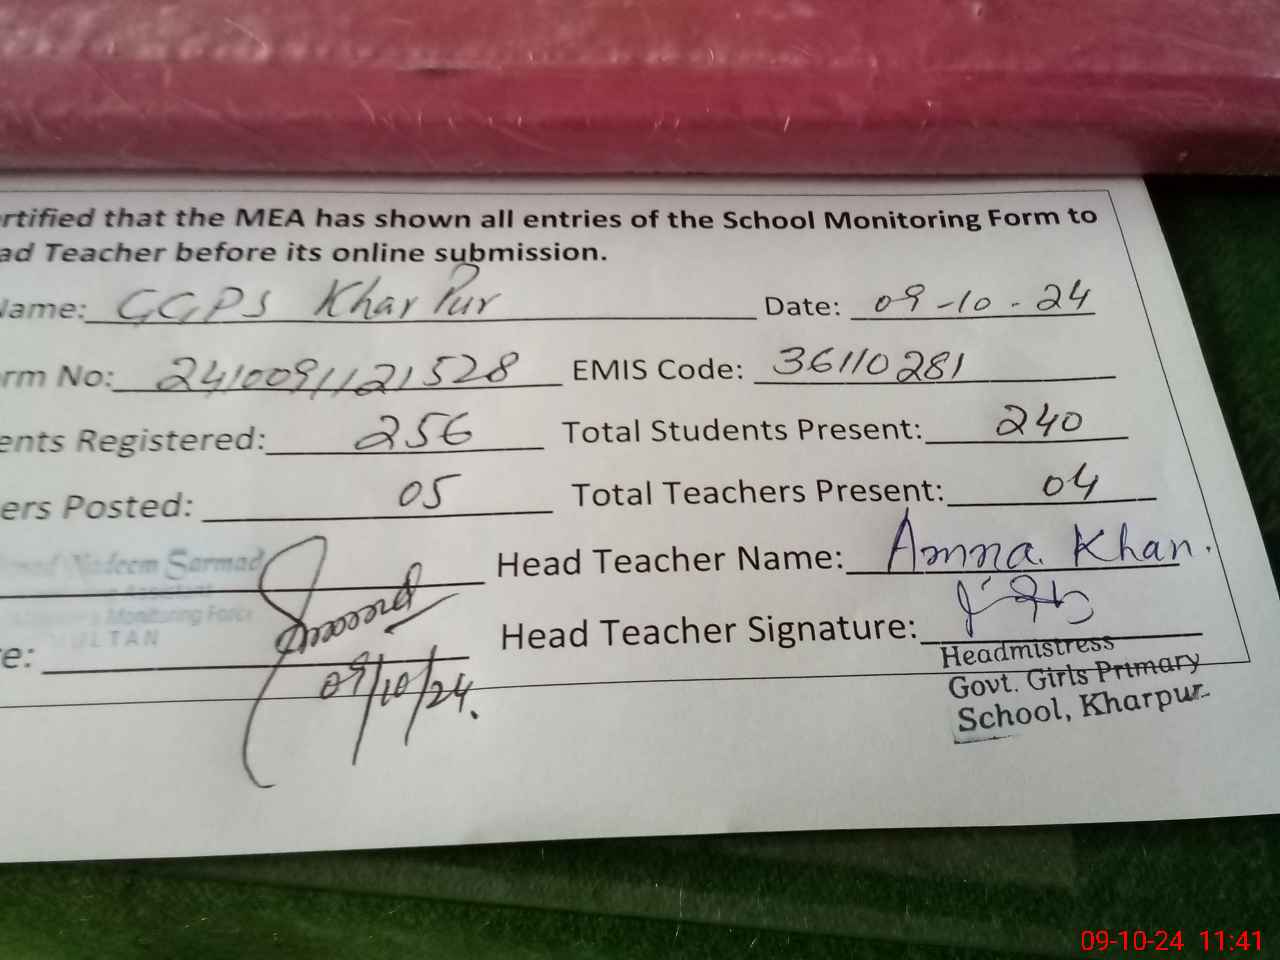 rtified that the MEA has shown all entries of the School Monitoring Form to
ad Teacher before its online submission.
Name: GGPS Khar Pur Date: 09-10-24
rm No: 2410091121528 EMIS Code: 36110281
ents Registered: 256 Total Students Present: 240
ers Posted: 05 Total Teachers Present: 04
Nadeem Sarmad Head Teacher Name: Amna Khan.
Monitoring Force
LTAN
e: Head Teacher Signature:
09/10/24.
Headmistress
Govt. Girls Primary
School, Kharpur
09-10-24 11:41